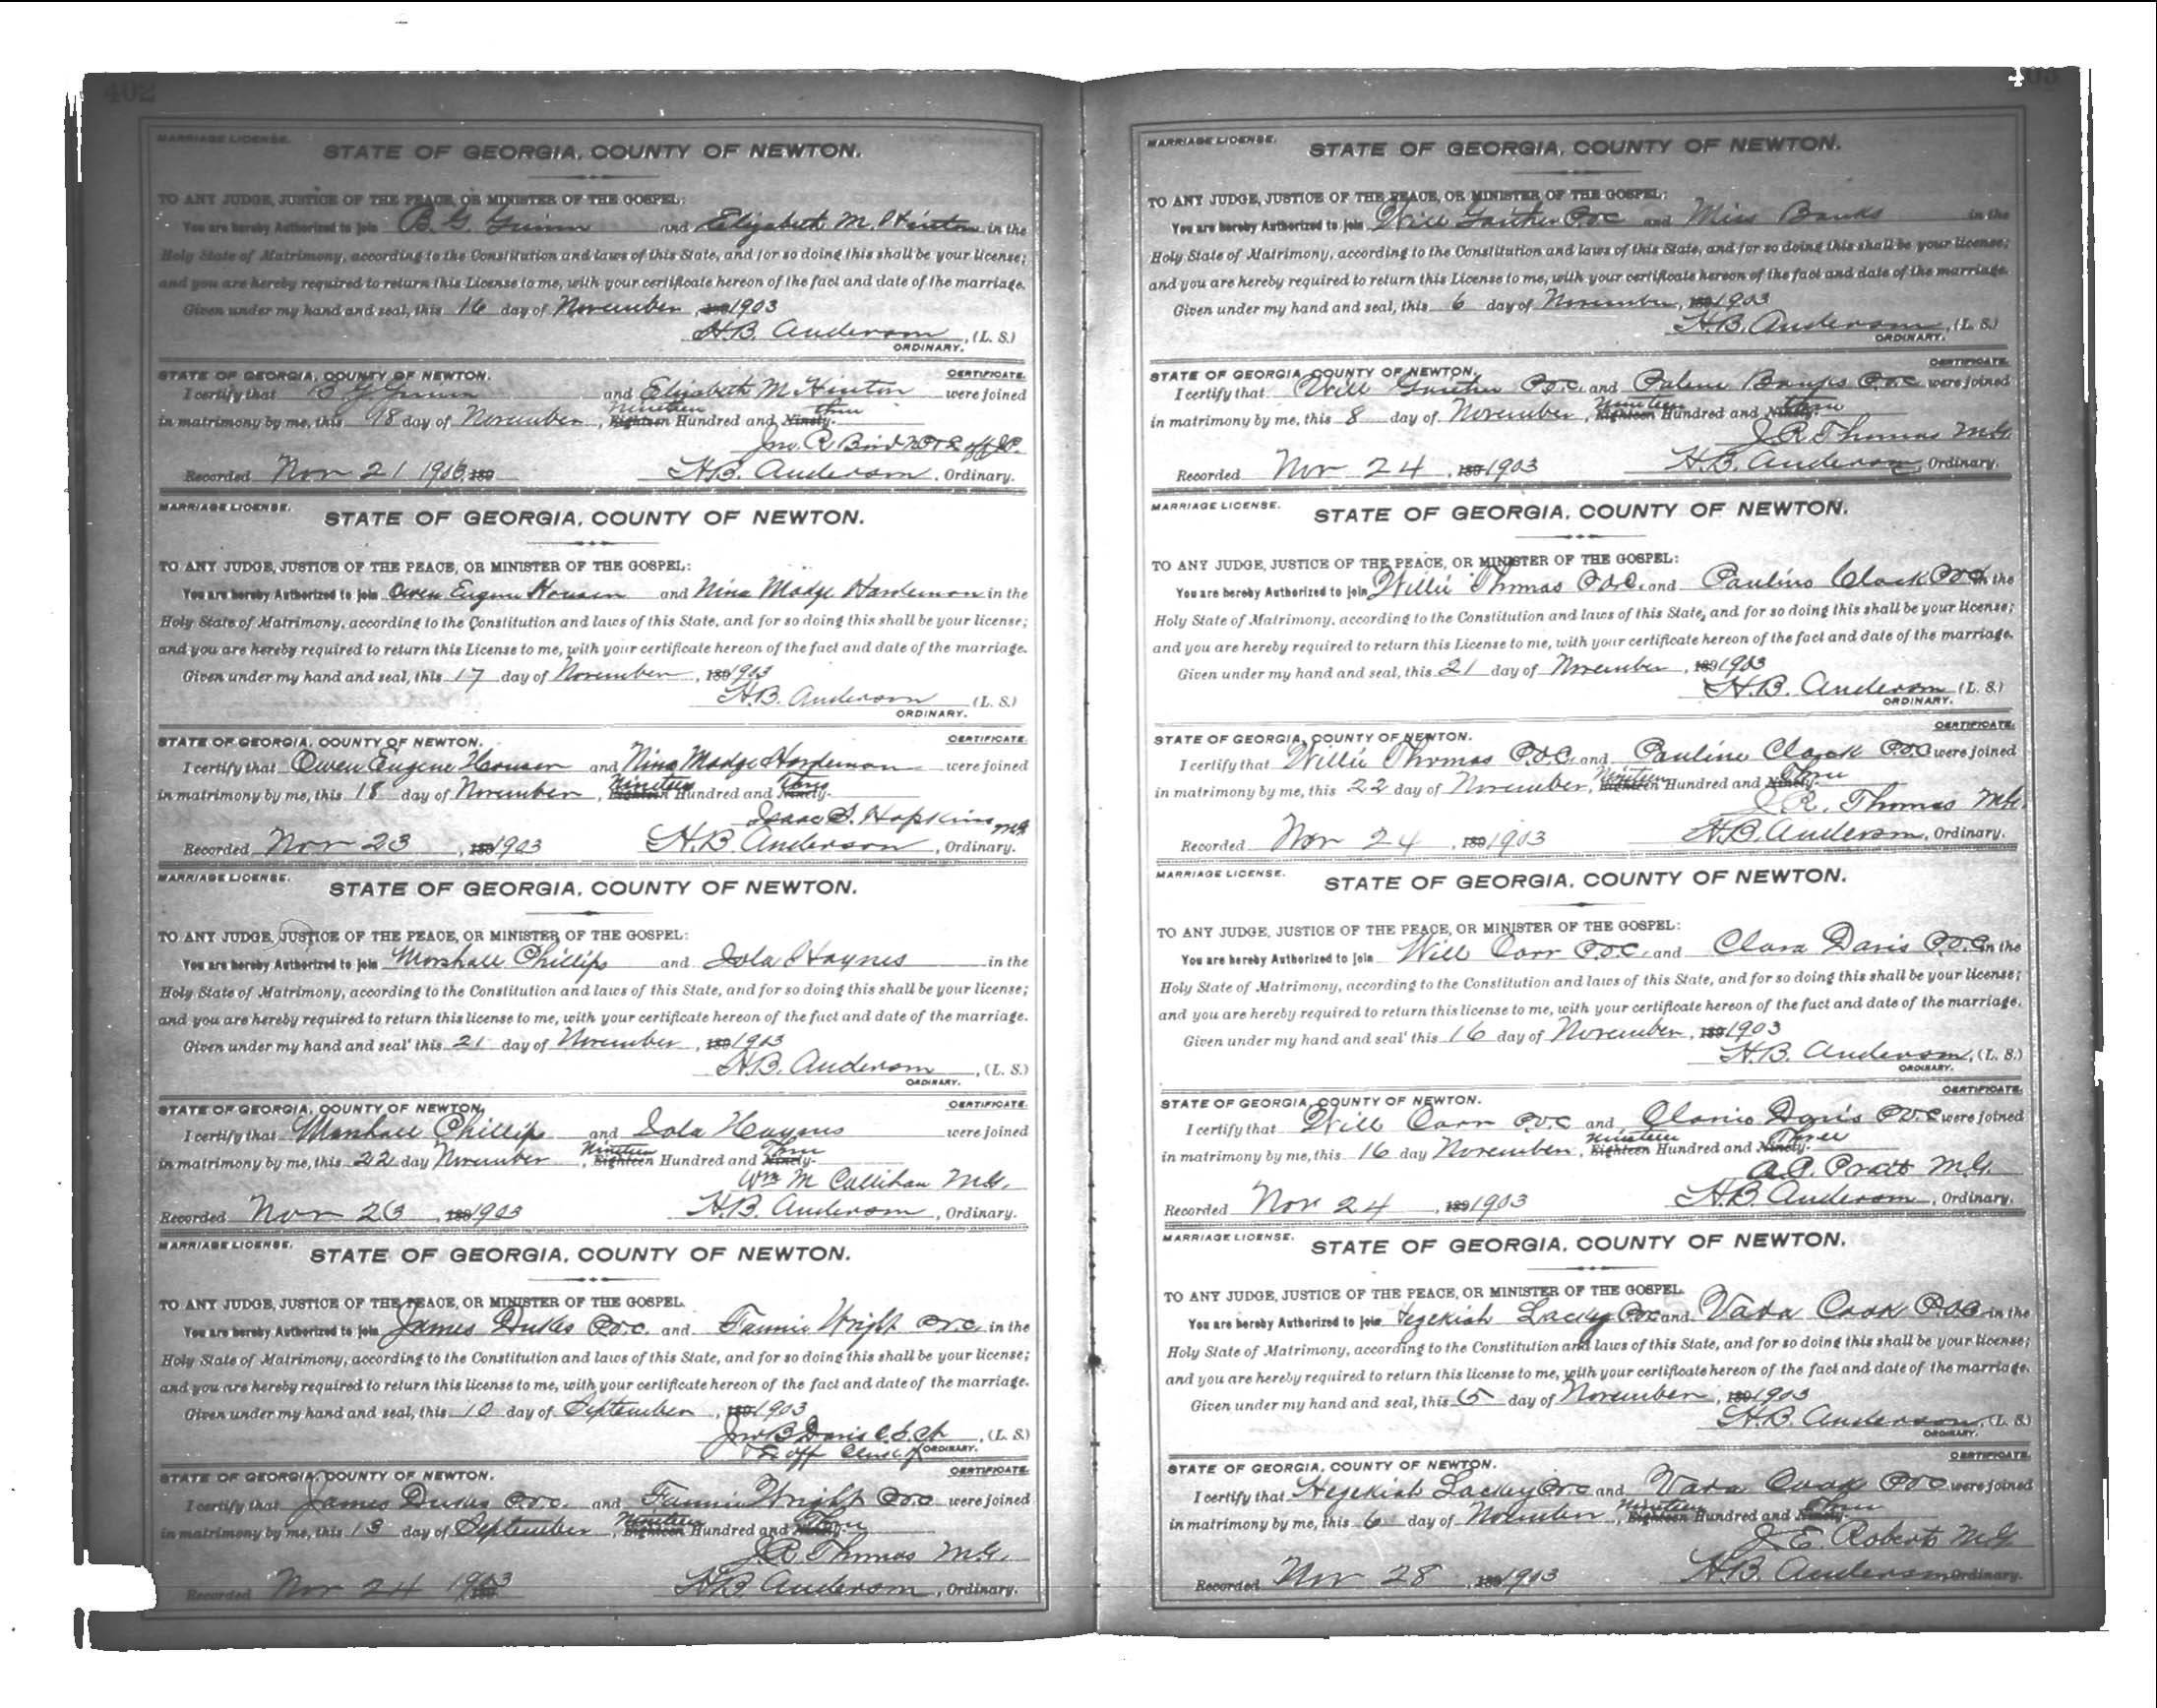 402
MARRIAGE LICENSE.
STATE OF GEORGIA, COUNTY OF NEWTON.
TO ANY JUDGE, JUSTICE OF THE PEACE, OR MINISTER OF THE GOSPEL:
You are hereby Authorized to join B. G. and Elizabeth M. Hinton in the
Holy State of Matrimony, according to the Constitution and laws of this State, and for so doing this shall be your license;
and you are hereby required to return this License to me, with your certificate hereon of the fact and date of the marriage.
Given under my hand and seal, this 16 day of November, 189 1903
H.B. Anderson, (L. S.)
ORDINARY.
STATE OF GEORGIA, COUNTY OF NEWTON. CERTIFICATE.
I certify that B G and Elizabeth M Hinton were joined
in matrimony by me, this 18 day of November, Eighteen Nineteen Hundred and Ninety- three
Jno. R. Bird
Recorded Nov 21 1903 189 H.B. Anderson, Ordinary.
MARRIAGE LICENSE.
STATE OF GEORGIA, COUNTY OF NEWTON.
TO ANY JUDGE, JUSTICE OF THE PEACE, OR MINISTER OF THE GOSPEL:
You are hereby Authorized to join Owen Eugene and Nina Madge Hardeman in the
Holy State of Matrimony, according to the Constitution and laws of this State, and for so doing this shall be your license;
and you are hereby required to return this License to me, with your certificate hereon of the fact and date of the marriage.
Given under my hand and seal, this 17 day of November, 189 1903
H.B. Anderson (L. S.)
ORDINARY.
STATE OF GEORGIA, COUNTY OF NEWTON. CERTIFICATE.
I certify that Owen Eugene and Nina Madge Hardeman were joined
in matrimony by me, this 18 day of November, Eighteen Nineteen Hundred and Ninety- Three
Isaac S. Hopkins MG
Recorded Nov 23, 189 1903 H.B. Anderson, Ordinary.
MARRIAGE LICENSE.
STATE OF GEORGIA, COUNTY OF NEWTON.
TO ANY JUDGE, JUSTICE OF THE PEACE, OR MINISTER OF THE GOSPEL:
You are hereby Authorized to join Marshall Phillips and Iola Haynes in the
Holy State of Matrimony, according to the Constitution and laws of this State, and for so doing this shall be your license;
and you are hereby required to return this license to me, with your certificate hereon of the fact and date of the marriage.
Given under my hand and seal' this 21 day of November, 189 1903
H.B. Anderson, (L. S.)
ORDINARY.
STATE OF GEORGIA, COUNTY OF NEWTON. CERTIFICATE.
I certify that Marshall Phillips and Iola Haynes were joined
in matrimony by me, this 22 day November, Eighteen Nineteen Hundred and Ninety- Three
Wm M Callihan M.G.
Recorded Nov 23, 189 1903 H.B. Anderson, Ordinary.
MARRIAGE LICENSE.
STATE OF GEORGIA, COUNTY OF NEWTON.
TO ANY JUDGE, JUSTICE OF THE PEACE, OR MINISTER OF THE GOSPEL.
You are hereby Authorized to join James Dukes P.O.C. and Fannie Wright P.O.C. in the
Holy State of Matrimony, according to the Constitution and laws of this State, and for so doing this shall be your license;
and you are hereby required to return this license to me, with your certificate hereon of the fact and date of the marriage.
Given under my hand and seal, this 10 day of September, 189 1903
Jno B Davis, (L. S.)
ORDINARY.
STATE OF GEORGIA, COUNTY OF NEWTON. CERTIFICATE.
I certify that James Dukes P.O.C. and Fannie Wright P.O.C were joined
in matrimony by me, this 13 day of September, Eighteen Nineteen Hundred and Ninety- Three
J.R. Thomas M.G.
Recorded Nov 24 1903 H.B. Anderson, Ordinary.
403
MARRIAGE LICENSE.
STATE OF GEORGIA, COUNTY OF NEWTON.
TO ANY JUDGE, JUSTICE OF THE PEACE, OR MINISTER OF THE GOSPEL:
You are hereby Authorized to join Will Gaither P.O.C and Miss Banks in the
Holy State of Matrimony, according to the Constitution and laws of this State, and for so doing this shall be your license;
and you are hereby required to return this License to me, with your certificate hereon of the fact and date of the marriage.
Given under my hand and seal, this 6 day of November, 189 1903
H.B. Anderson, (L. S.)
ORDINARY.
CERTIFICATE.
STATE OF GEORGIA, COUNTY OF NEWTON.
I certify that Will Gaither P.O.C. and Banks P.O.C were joined
in matrimony by me, this 8 day of November, Eighteen Nineteen Hundred and Ninety- three
J R Thomas M.G.
Recorded Nov 24, 189 1903 H.B. Anderson, Ordinary.
MARRIAGE LICENSE.
STATE OF GEORGIA, COUNTY OF NEWTON.
TO ANY JUDGE, JUSTICE OF THE PEACE, OR MINISTER OF THE GOSPEL:
You are hereby Authorized to join Willie Thomas P.O.C. and Pauline Clark P.O.C. in the
Holy State of Matrimony, according to the Constitution and laws of this State, and for so doing this shall be your license;
and you are hereby required to return this License to me, with your certificate hereon of the fact and date of the marriage.
Given under my hand and seal, this 21 day of November, 189 1903
H.B. Anderson (L. S.)
ORDINARY.
CERTIFICATE.
STATE OF GEORGIA, COUNTY OF NEWTON.
I certify that Willie Thomas P.O.C. and Pauline Clark P.O.C were joined
in matrimony by me, this 22 day of November, Eighteen Nineteen Hundred and Ninety- Three
J. R. Thomas M.G.
Recorded Nov 24, 189 1903 H.B. Anderson, Ordinary.
MARRIAGE LICENSE.
STATE OF GEORGIA, COUNTY OF NEWTON.
TO ANY JUDGE, JUSTICE OF THE PEACE, OR MINISTER OF THE GOSPEL:
You are hereby Authorized to join Will Carr P.O.C. and Clara Davis P.O.C. in the
Holy State of Matrimony, according to the Constitution and laws of this State, and for so doing this shall be your license;
and you are hereby required to return this license to me, with your certificate hereon of the fact and date of the marriage.
Given under my hand and seal' this 16 day of November, 189 1903
H.B. Anderson, (L. S.)
ORDINARY.
CERTIFICATE.
STATE OF GEORGIA, COUNTY OF NEWTON.
I certify that Will Carr P.O.C and Davis P.O.C were joined
in matrimony by me, this 16 day November, Eighteen Nineteen Hundred and Ninety- Three
M.G.
Recorded Nov 24, 189 1903 H.B. Anderson, Ordinary.
MARRIAGE LICENSE.
STATE OF GEORGIA, COUNTY OF NEWTON.
TO ANY JUDGE, JUSTICE OF THE PEACE, OR MINISTER OF THE GOSPEL.
You are hereby Authorized to join Hezekiah Lackey P.O.C and Vada Cook P.O.C in the
Holy State of Matrimony, according to the Constitution and laws of this State, and for so doing this shall be your license;
and you are hereby required to return this license to me, with your certificate hereon of the fact and date of the marriage.
Given under my hand and seal, this 5 day of November, 189 1903
H.B. Anderson, (L. S.)
ORDINARY.
CERTIFICATE.
STATE OF GEORGIA, COUNTY OF NEWTON.
I certify that Hezekiah Lackey P.O.C and Vada Cook P.O.C were joined
in matrimony by me, this 6 day of November, Eighteen Nineteen Hundred and Ninety- Three
J. E. Roberts M.G.
Recorded Nov 28, 189 1903 H.B. Anderson Ordinary.